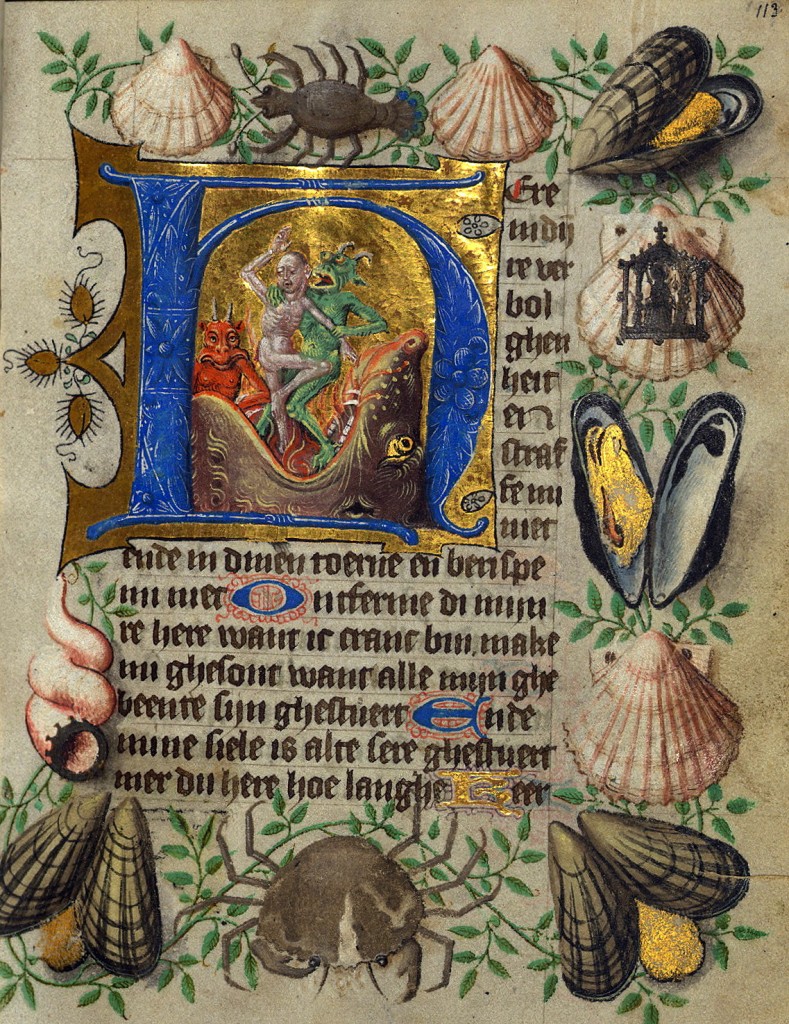 113
Here
in dij
re ver
bol
ghen
heit
en
straf
fe mi
niet
ende in dinen toerne en berispe
mi niet Ontferme di mijn
re here want ic cranc bin make
mi ghesont want alle mijn ghe
beente sijn ghestuert Ende
mine siele is alte sere ghestuert
mer du here hoe langhe Keer